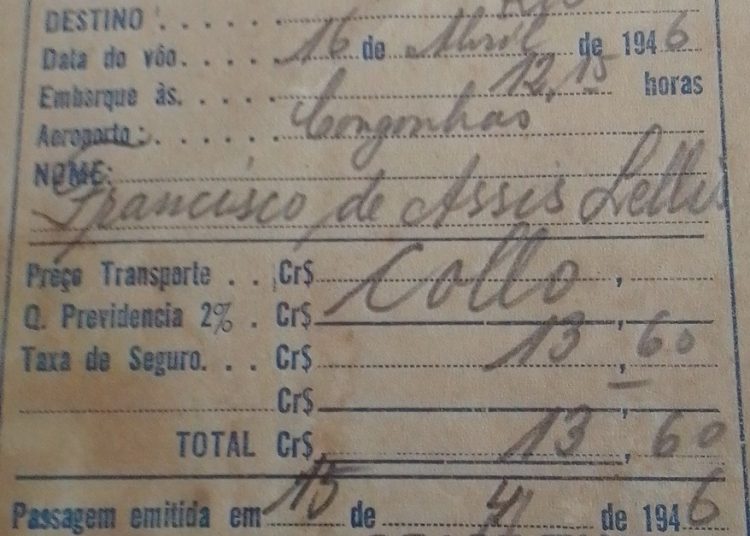 DESTINO . . . . . . Rio
Data do vôo. . . . . . 16 de Abril de 1946
Embarque às. . . . . 12,15 horas
Aeroporto: . . . . . . Congonhas
NOME:
Francisco de Assis Lellis
Preço Transporte . . Cr$ Collo ,
Q. Previdencia 2% . Cr$ ,
Taxa de Seguro. . . Cr$ 13,60
Cr$ ,
TOTAL Cr$ 13,60
Passagem emitida em 15 de 4 de 1946